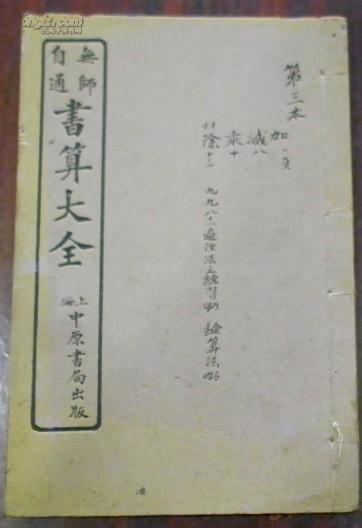 第三本
加一頁
減八
乘十
除十三
九九八一遍 法之練習 算法
無師自通
書算大全
上海中原書局出版